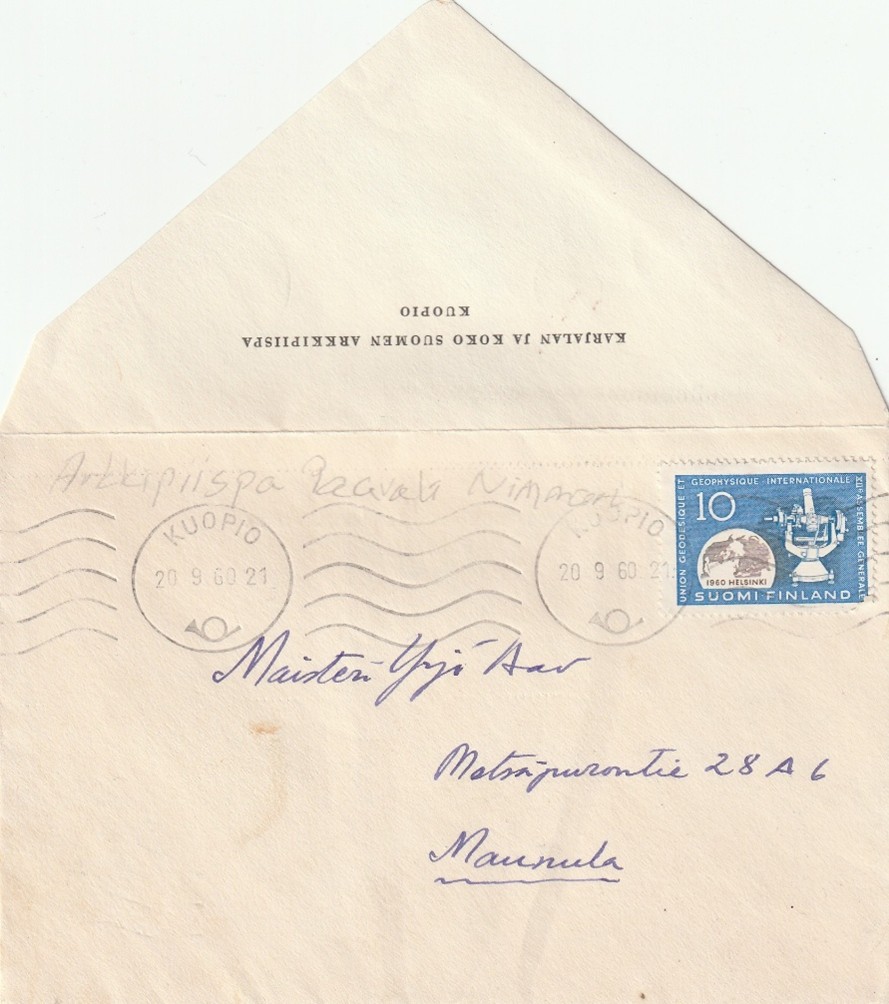 KARJALAN JA KOKO SUOMEN ARKKIPIISPA
KUOPIO
Arkkipiispa Paavali
KUOPIO
20 9 60 21
KUOPIO
20 9 60 21
UNION GEODESIQUE ET GEOPHYSIQUE INTERNATIONALE XII E ASSEMBLEE GENERALE
10
1960 HELSINKI
SUOMI-FINLAND
Maisteri Yrjö
Metsäpurontie 28 A 6
Maunula